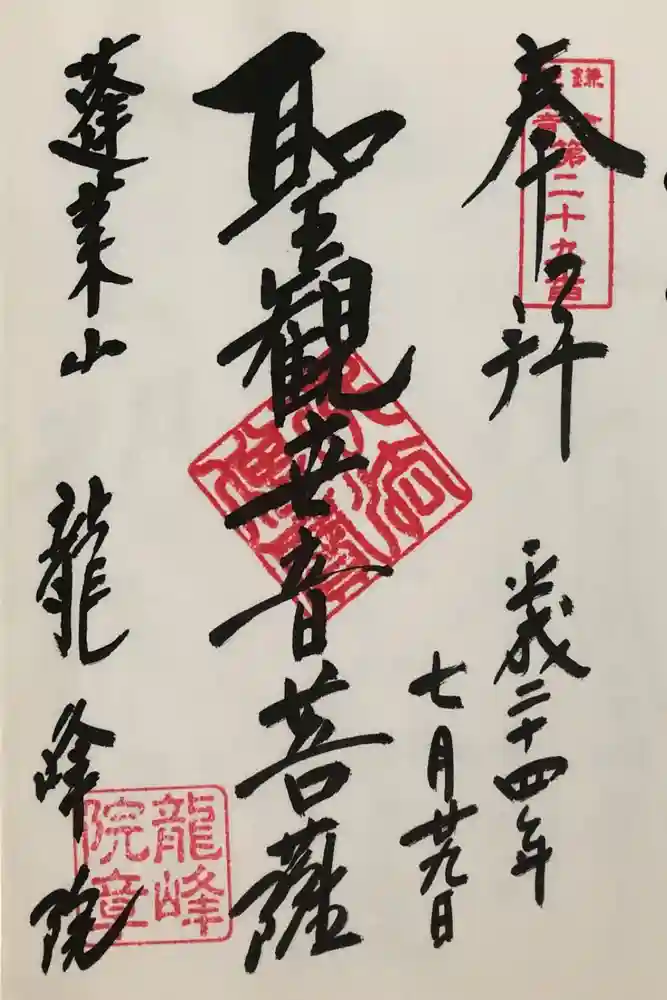 奉拝
鎌倉
観音第二十九番
平成二十四年
七月廿九日
聖觀世音菩薩
蓬莱山
龍峰院
龍峰
院章